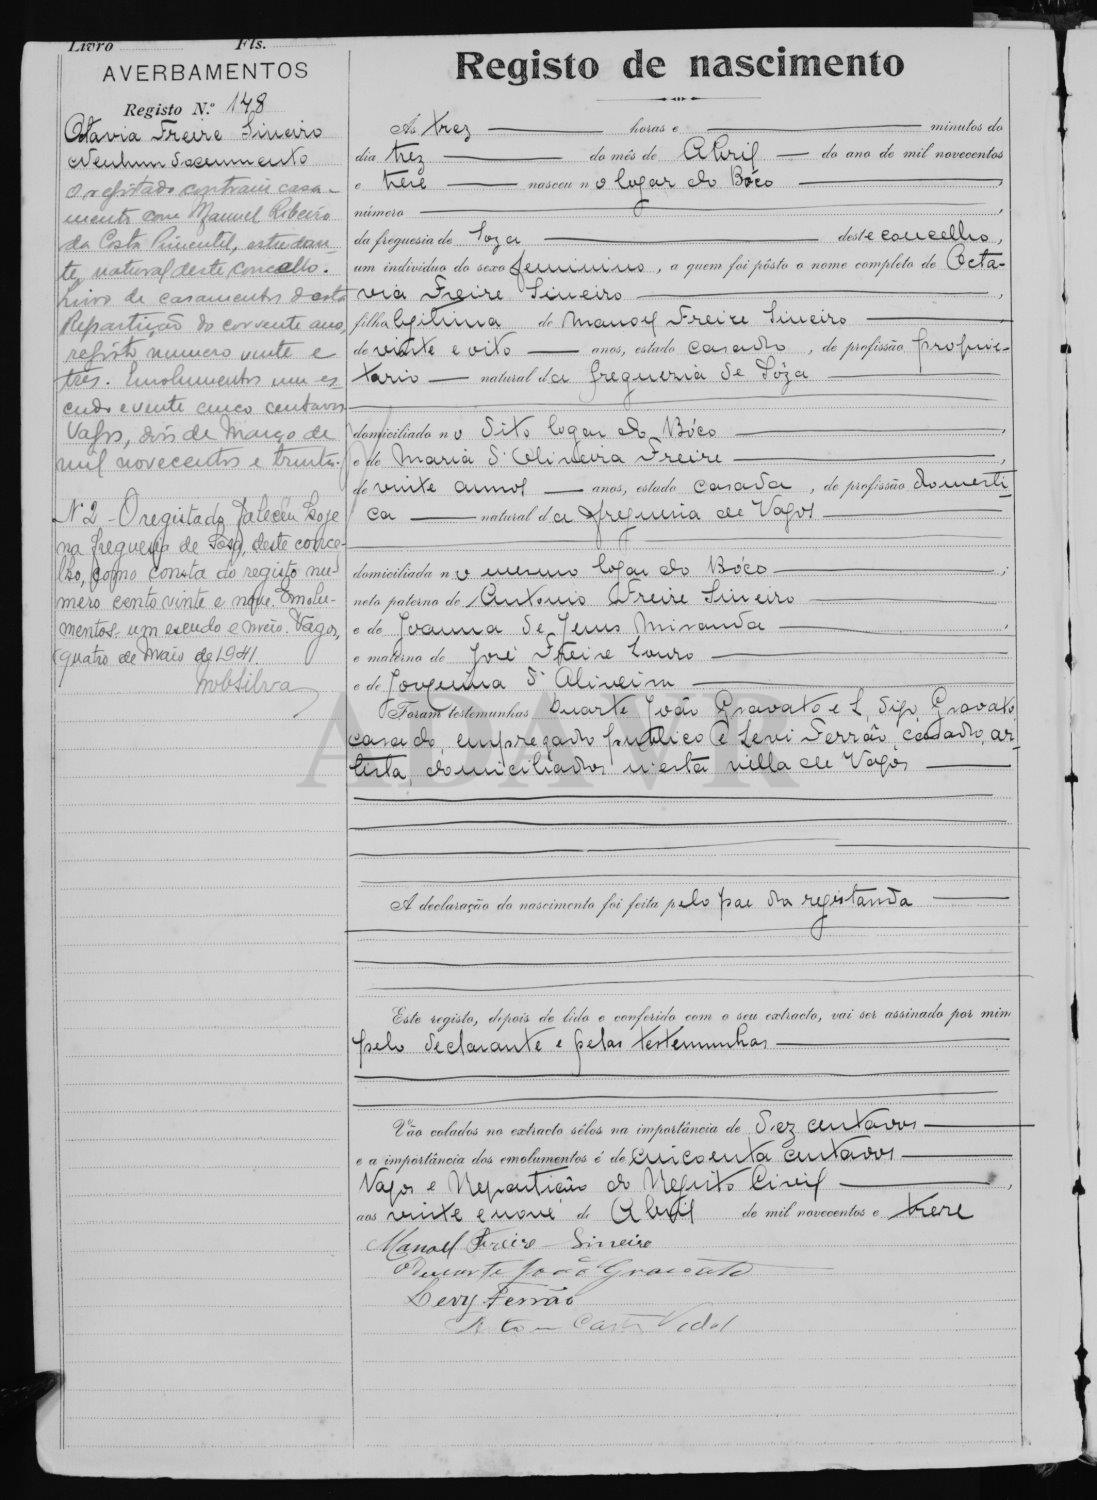 Livro Fls.
AVERBAMENTOS
Registo N.º 148
Octavia Freire Sineiro
Nenhum documento
O registado contraiu casa-
mento com Manuel Ribeiro
da Costa Pimentel, estudan-
te, natural deste concelho.
Livro de casamentos desta
Repartição do corrente ano,
registo numero vinte e
tres. Emolumentos um es-
cudo e vinte cinco centavos
Vagos, dois de Março de
mil novecentos e trinta.
Nº 2 - O registado faleceu hoje
na freguesia de Soza, deste conce-
lho, como consta do registo nu-
mero cento vinte e nove. Emolu-
mentos um escudo e meio. Vagos,
quatro de Maio de 1941.
Silva
Registo de nascimento
Ás trez horas e minutos do
dia trez do mês de Abril do ano de mil novecentos
e treze nasceu no logar do Bóco
número
da freguesia de Soza deste concelho,
um indivíduo do sexo feminino, a quem foi pôsto o nome completo de Octa-
via Freire Sineiro
filha legitima de Manoel Freire Sineiro
de vinte e oito anos, estado casado, de profissão proprie-
tario natural da freguezia de Sôza
domiciliado no dito logar do Bóco
e de Maria d'Oliveira Freire
de vinte annos anos, estado casada, de profissão domesti-
ca natural da freguezia de Vagos
domiciliada no mesmo logar do Bóco
neto paterno de Antonio Freire Sineiro
e de Joanna de Jesus Miranda
e materno de José Freire Louro
e de Joaquina d'Oliveira
Foram testemunhas Duarte João Gravato e L, digo, Gravato
casado, empregado publico e Levi Ferrão, casado, ar-
tista, domiciliados n'esta villa de Vagos
ADAVR
A declaração do nascimento foi feita pelo pae da registanda
Este registo, depois de lido e conferido com o seu extracto, vai ser assinado por mim
pelo declarante e pelas testemunhas
Vão colados no extracto sêlos na importância de dez centavos
e a importância dos emolumentos é de cincoenta centavos
Vagos e Repartição do Registo Civil
aos vinte e nove de Abril de mil novecentos e treze
Manoel Freire Sineiro
Duarte João Gravato
Levy Ferrão
Vidal